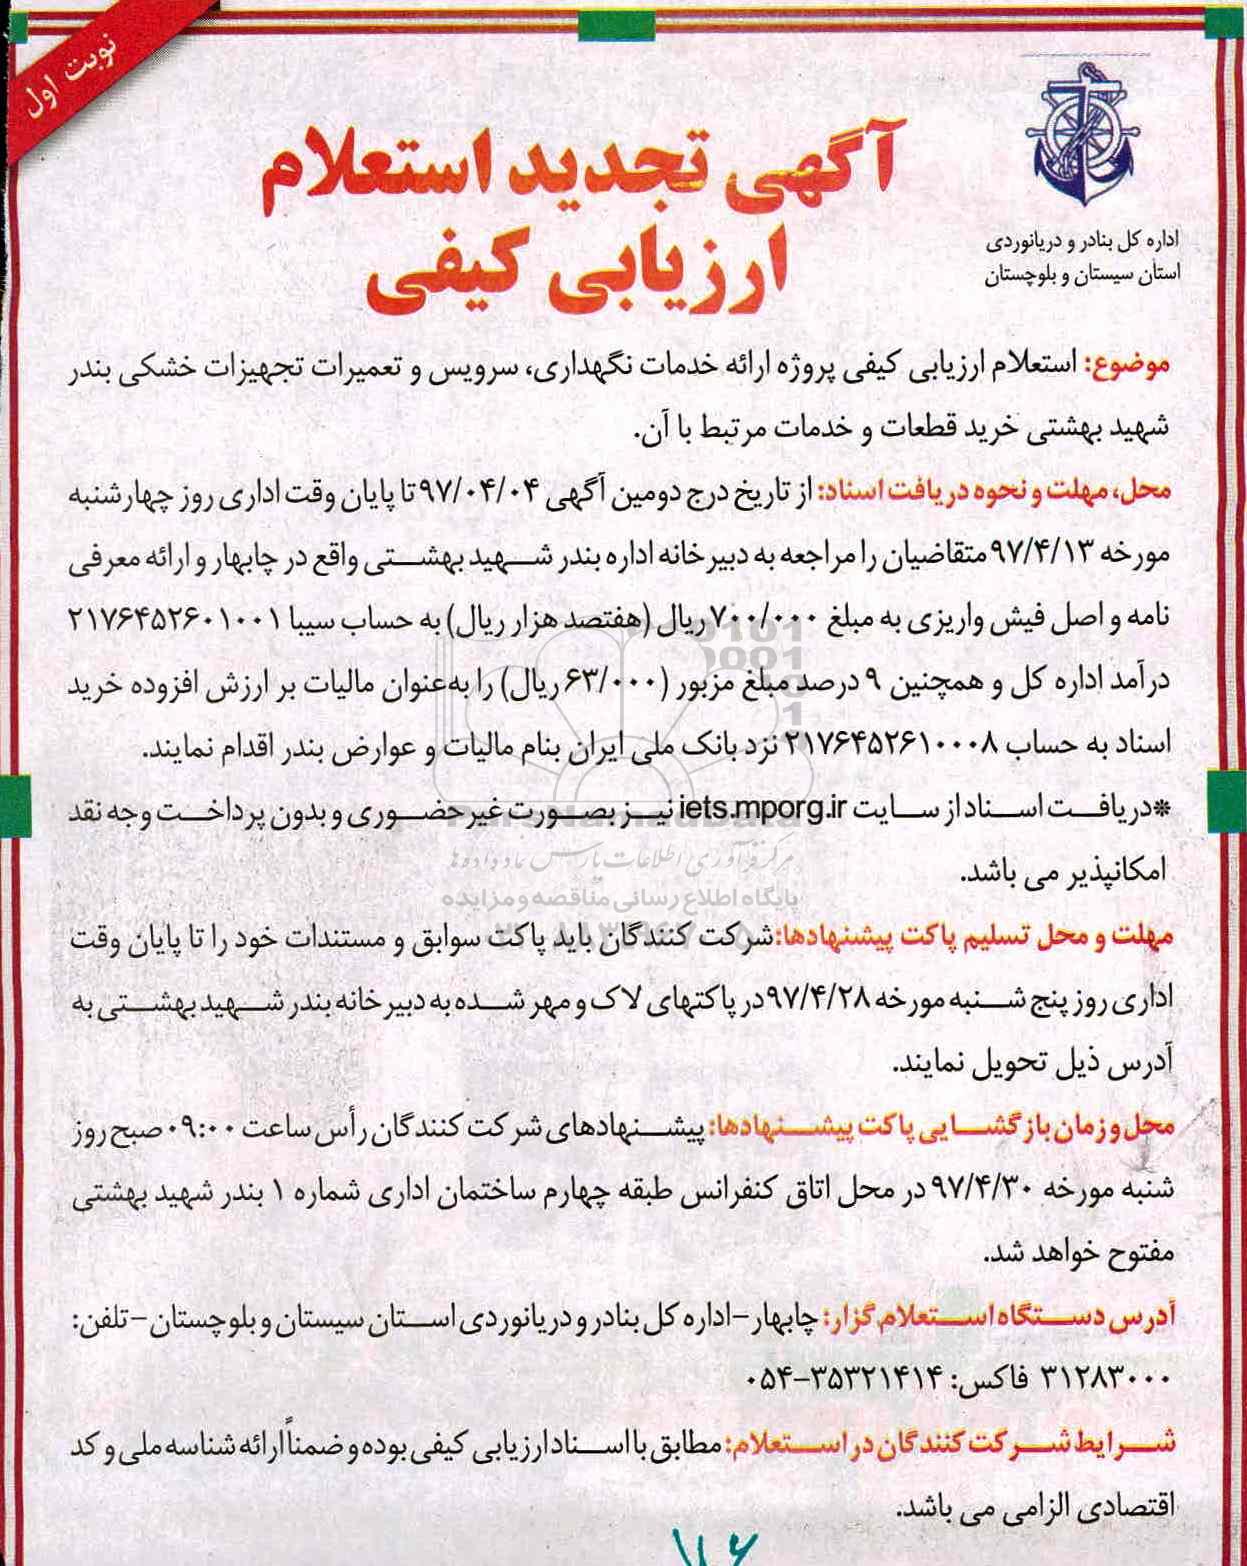 نوبت اول
اداره کل بنادر و دریانوردی
استان سیستان و بلوچستان
آگهی تجدید استعلام
ارزیابی کیفی
موضوع: استعلام ارزیابی کیفی پروژه ارائه خدمات نگهداری، سرویس و تعمیرات تجهیزات خشکی بندر
شهید بهشتی خرید قطعات و خدمات مرتبط با آن.
محل، مهلت و نحوه دریافت اسناد: از تاریخ درج دومین آگهی ۹۷/۰۴/۰۴ تا پایان وقت اداری روز چهارشنبه
مورخه ۹۷/۴/۱۳ متقاضیان را مراجعه به دبیرخانه اداره بندر شهید بهشتی واقع در چابهار و ارائه معرفی
نامه و اصل فیش واریزی به مبلغ ۷۰۰/۰۰۰ ریال (هفتصد هزار ریال) به حساب سیبا ۲۱۷۶۴۵۲۶۰۱۰۰۱
درآمد اداره کل و همچنین ۹ درصد مبلغ مزبور (۶۳/۰۰۰ ریال) را به‌عنوان مالیات بر ارزش افزوده خرید
اسناد به حساب ۲۱۷۶۴۵۲۶۱۰۰۰۸ نزد بانک ملی ایران بنام مالیات و عوارض بندر اقدام نمایند.
*دریافت اسناد از سایت iets.mporg.ir نیز بصورت غیرحضوری و بدون پرداخت وجه نقد
امکانپذیر می باشد.
مهلت و محل تسلیم پاکت پیشنهادها: شرکت کنندگان باید پاکت سوابق و مستندات خود را تا پایان وقت
اداری روز پنج شنبه مورخه ۹۷/۴/۲۸ در پاکتهای لاک و مهر شده به دبیرخانه بندر شهید بهشتی به
آدرس ذیل تحویل نمایند.
محل و زمان بازگشایی پاکت پیشنهادها: پیشنهادهای شرکت کنندگان رأس ساعت ۰۹:۰۰ صبح روز
شنبه مورخه ۹۷/۴/۳۰ در محل اتاق کنفرانس طبقه چهارم ساختمان اداری شماره ۱ بندر شهید بهشتی
مفتوح خواهد شد.
آدرس دستگاه استعلام گزار: چابهار-اداره کل بنادر و دریانوردی استان سیستان و بلوچستان-تلفن:
۳۱۲۸۳۰۰۰ فاکس: ۳۵۳۲۱۴۱۴-۰۵۴
شرایط شرکت کنندگان در استعلام: مطابق با اسناد ارزیابی کیفی بوده و ضمناً ارائه شناسه ملی و کد
اقتصادی الزامی می باشد.
ParsNamadData
مرکز فرآوری اطلاعات پارس نماد داده ها
پایگاه اطلاع رسانی مناقصه و مزایده